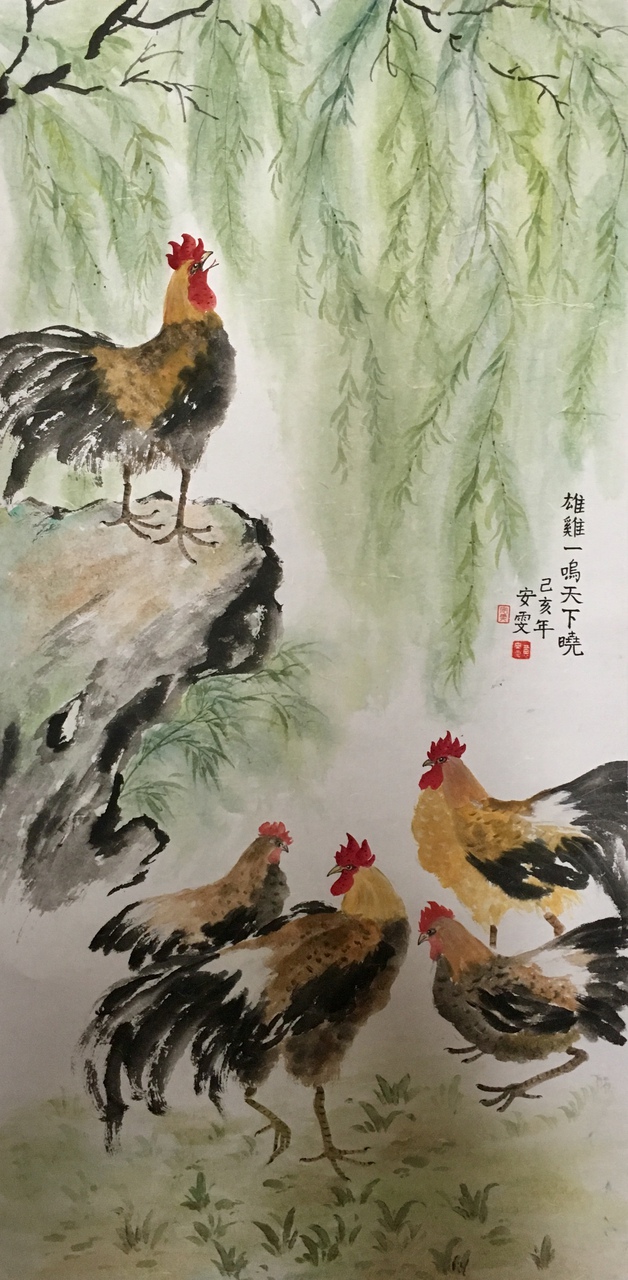 雄雞一鳴天下曉
己亥年
安雯